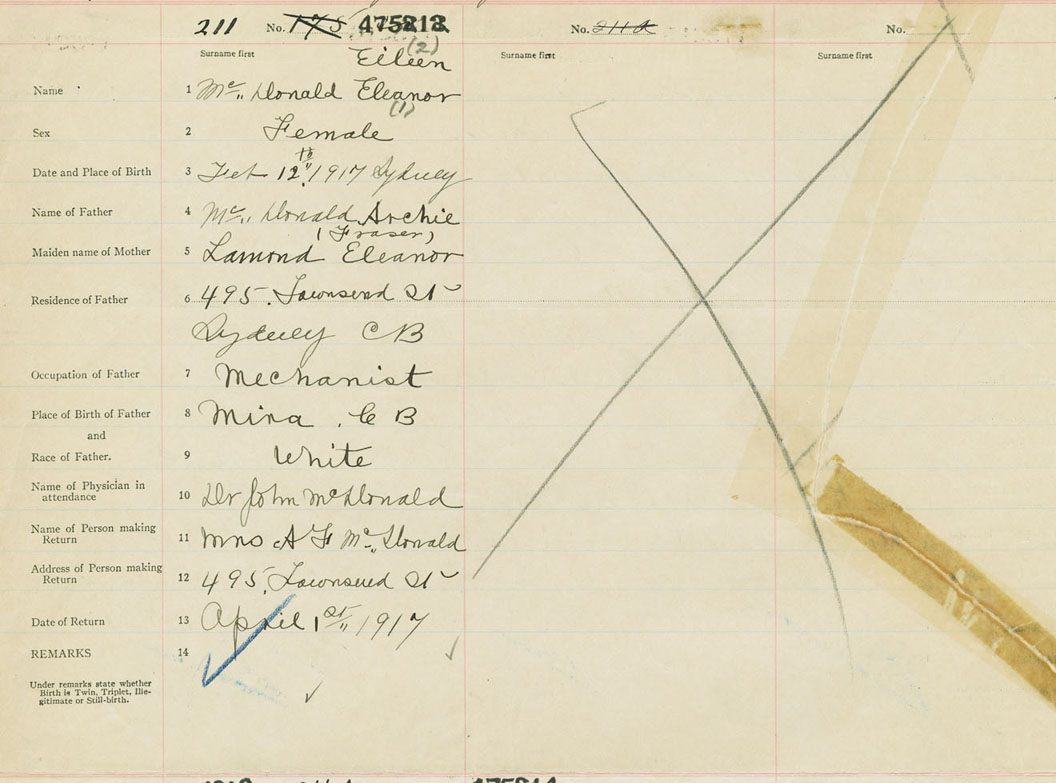 211 No. 175 475213
No. 211A
No.
Surname first
Surname first
Surname first
(2)
Eileen
Name 1 Mc Donald Eleanor
(1)
Sex 2 Female
Date and Place of Birth 3 Feb 12th 1917 Sydney
Name of Father 4 Mc Donald Archie
(Fraser)
Maiden name of Mother 5 Lamond Eleanor
Residence of Father 6 495. Townsend St
Sydney C B
Occupation of Father 7 Mechanist
Place of Birth of Father 8 Mira. C B
and
Race of Father. 9 White
Name of Physician in
attendance 10 Dr John McDonald
Name of Person making
Return 11 Mrs A F Mc Donald
Address of Person making
Return 12 495, Townsend St
Date of Return 13 April 1st 1917
REMARKS 14
Under remarks state whether
Birth is Twin, Triplet, Ille-
gitimate or Still-birth.